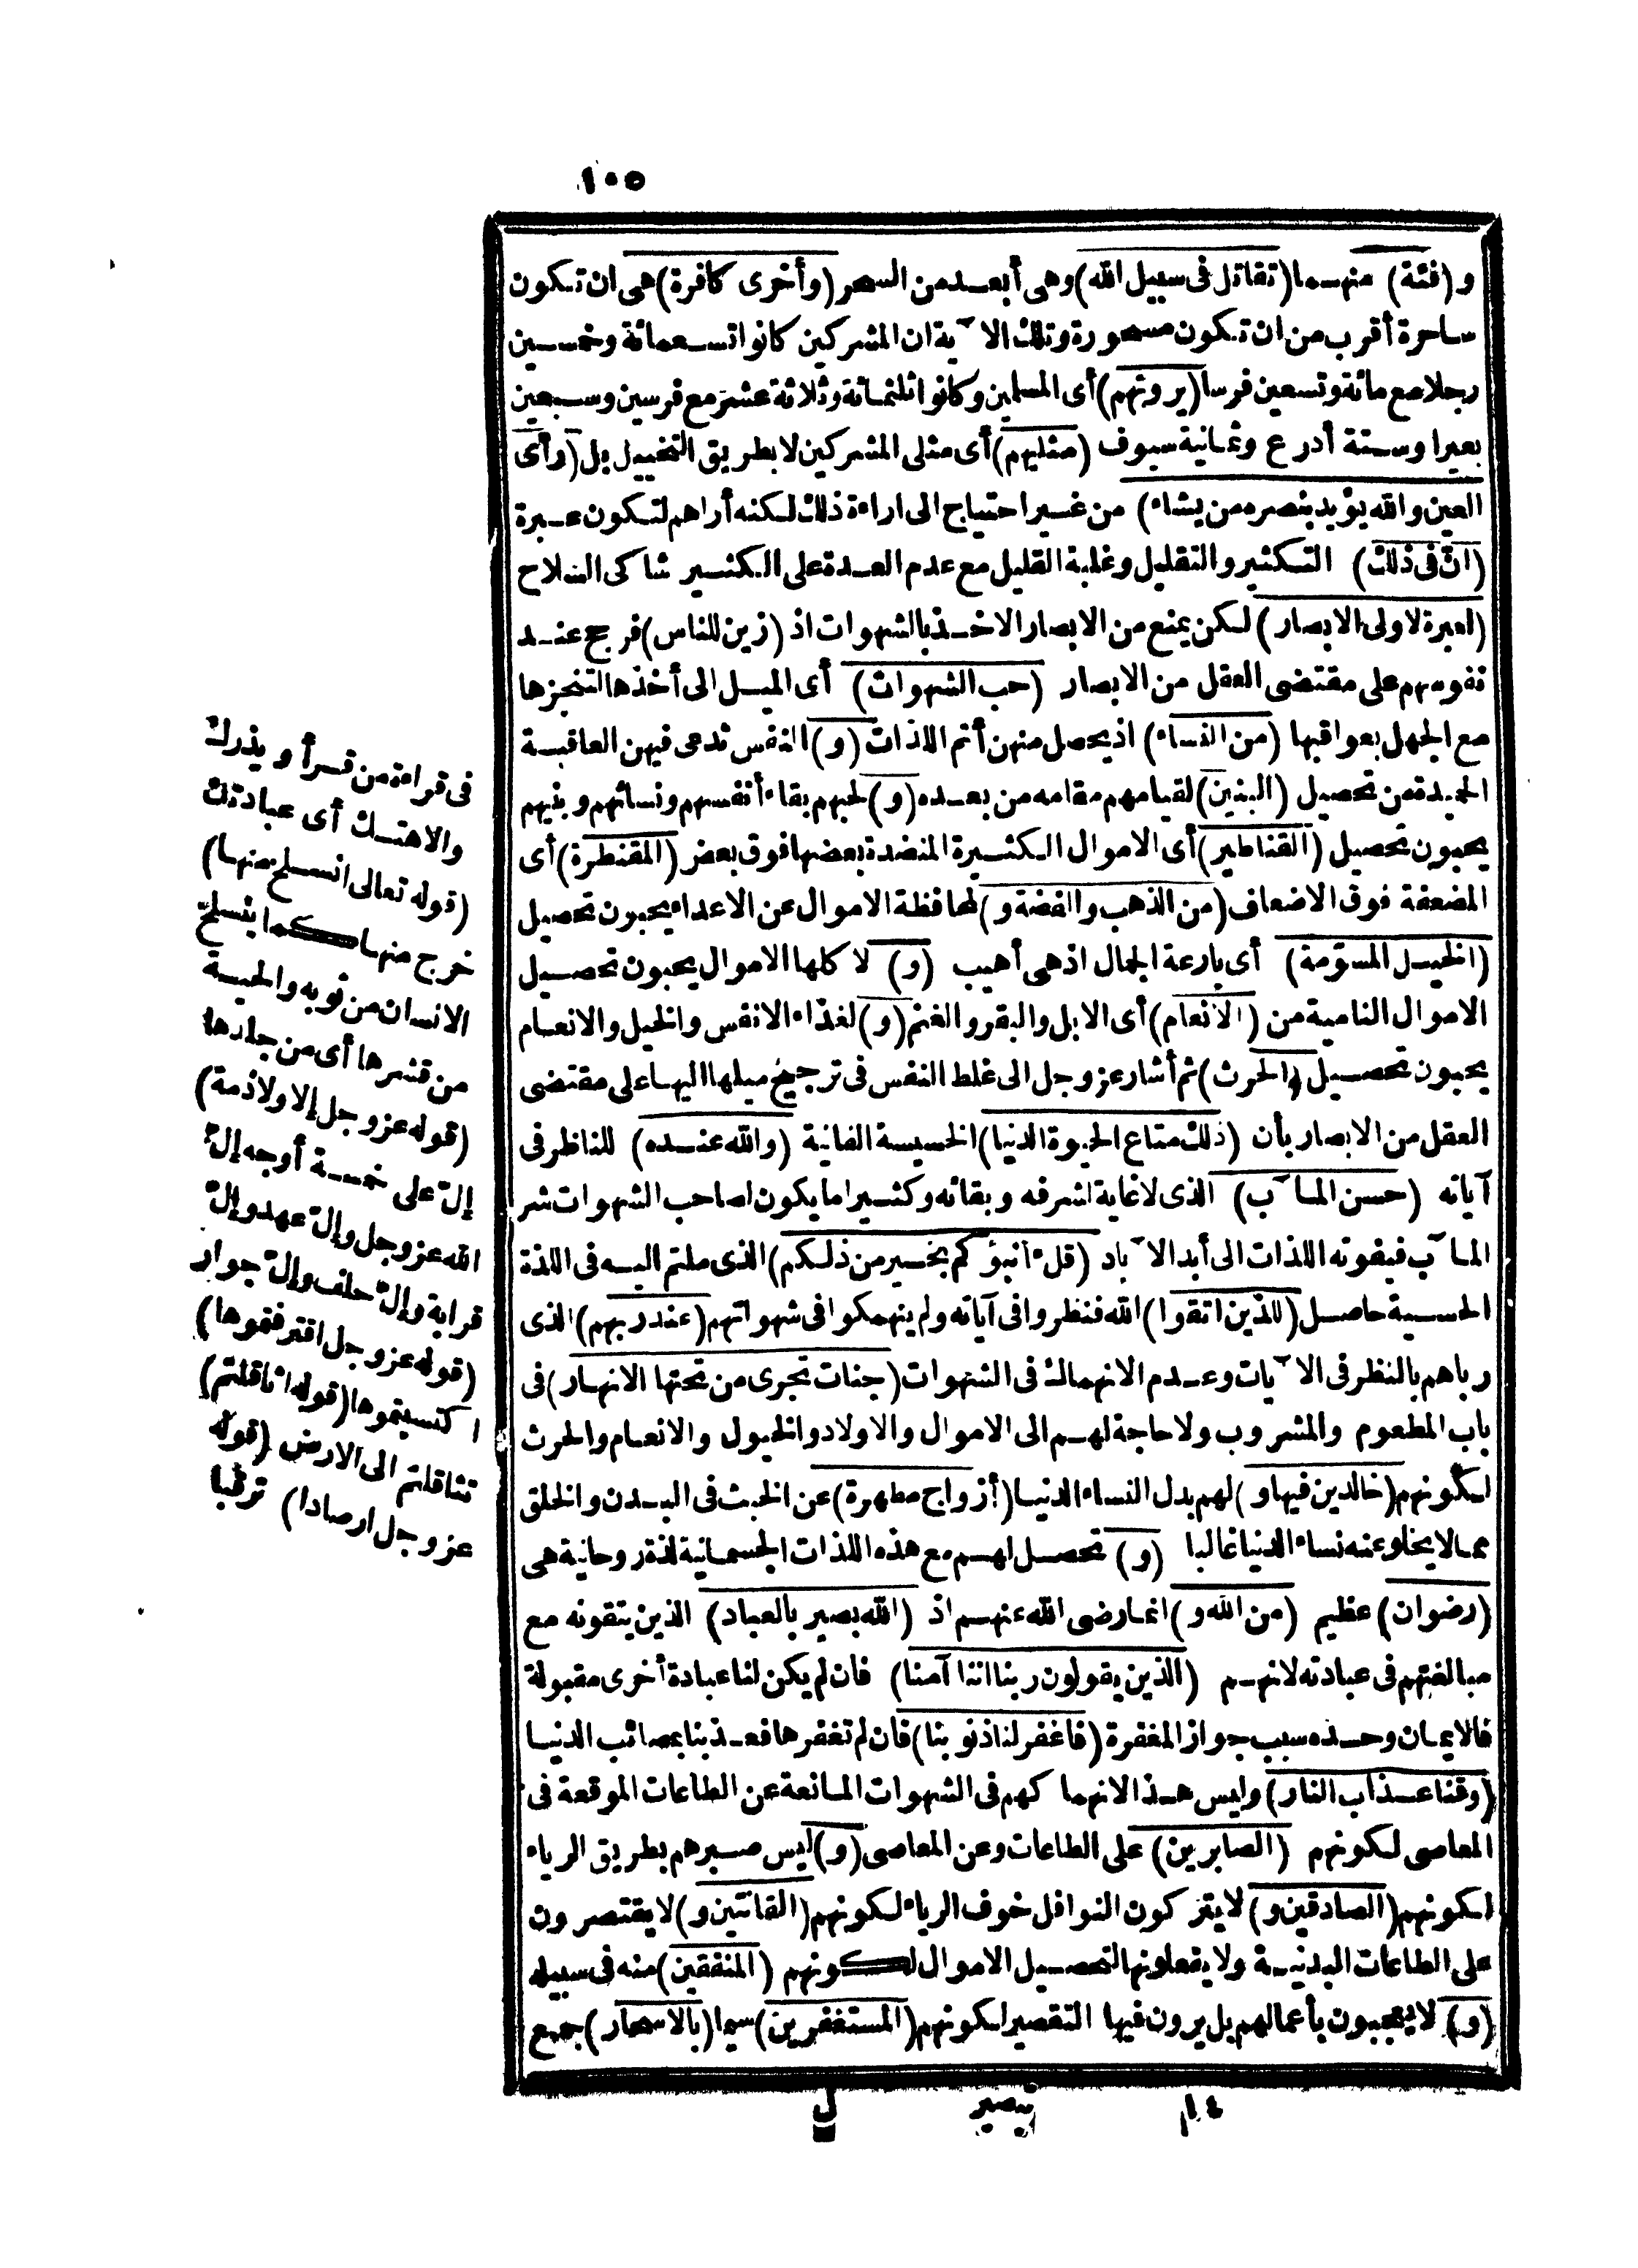 ١٠٥
و (فئة) منهما (تقاتل فى سبيل الله) وهى أبعد من السحر (وأخرى كافرة) هى ان تكون
ساحرة أقرب من ان تكون مسحورة وتلك الآية ان المشركين كانوا تسعمائة وخمسين
رجلا مع مائة وتسعين فرسا (يرونهم) أى المسلمين وكانوا ثلثمائة وثلاثة عشر مع فرسين وسبعين
بعيرا وستة أدرع وثمانية سيوف (مثليهم) أى مثلى المشركين لا بطريق التخييل بل (رأى
العين والله يؤيد بنصره من يشاء) من غير احتياج الى اراءة ذلك لكنه أراهم لتكون عبرة
(ان فى ذلك) التكثير والتقليل وغلبة القليل مع عدم العدة على الكثير شاكى السلاح
(لعبرة لاولى الابصار) لكن يمنع من الابصار الاخذ بالشهوات اذ (زين للناس) فرجح عند
نفوسهم على مقتضى العقل من الابصار (حب الشهوات) أى الميل الى أخذها التنجزها
مع الجهل بعواقبها (من النساء) اذ يحصل منهن أتم اللذات (و) النفس تدعى فيهن العاقبة
الحميدة من تحصيل (البنين) لقيامهم مقامه من بعده (و) لحبهم بقاء أنفسهم ونسائهم وبنيهم
يحبون تحصيل (القناطير) أى الاموال الكثيرة المنضدة بعضها فوق بعض (المقنطرة) أى
المضعفة فوق الاضعاف (من الذهب والفضة و) لمحافظة الاموال عن الاعداء يحبون تحصيل
(الخيل المسوّمة) أى بارعة الجمال اذ هى أهيب (و) لا كلها الاموال يحبون تحصيل
الاموال النامية من (الانعام) أى الابل والبقر والغنم (و) لغذاء الانفس والخيل والانعام
يحبون تحصيل (الحرث) ثم أشار عز وجل الى غلط النفس فى ترجيح ميلها اليها على مقتضى
العقل من الابصار بأن (ذلك متاع الحيوة الدنيا) الخسيسة الفانية (والله عنده) للناظر فى
آياته (حسن المآب) الذى لا غاية لشرفه وبقائه وكثيرا ما يكون لصاحب الشهوات شر
المآب فيفوته اللذات الى أبد الآباد (قل أنبؤكم بخير من ذلكم) الذى ملتم اليه فى اللذة
الحسية حاصل (للذين اتقوا) الله فنظروا فى آياته ولم ينهمكوا فى شهواتهم (عند ربهم) الذى
رباهم بالنظر فى الآيات وعدم الانهماك فى الشهوات (جنات تجرى من تحتها الانهار) فى
باب المطعوم والمشروب ولا حاجة لهم الى الاموال والاولاد والخيول والانعام والحرث
لكونهم (خالدين فيها و) لهم بدل النساء الدنيا (أزواج مطهرة) عن الخبث فى البدن والخلق
مما لا يخلو عنه نساء الدنيا غالبا (و) تحصل لهم مع هذه اللذات الجسمانية لذة روحانية هى
(رضوان) عظيم (من الله و) انما رضى الله عنهم اذ (الله بصير بالعباد) الذين يتقونه مع
مبالغتهم فى عبادته لانهم (الذين يقولون ربنا اننا آمنا) فان لم يكن لنا عبادة أخرى مقبولة
فالايمان وحده سبب جواز المغفرة (فاغفر لنا ذنوبنا) فان لم تغفرها فعذبنا بمصائب الدنيا
(وقنا عذاب النار) وليس هذا لانهماكهم فى الشهوات المانعة عن الطاعات الموقعة فى
المعاصى لكونهم (الصابرين) على الطاعات وعن المعاصى (و) ليس صبرهم بطريق الرياء
لكونهم (الصادقين و) لا يتركون النوافل خوف الرياء لكونهم (القانتين و) لا يقتصرون
على الطاعات البدنية ولا يفعلونها لتحصيل الاموال لكونهم (المنفقين) منه فى سبيله
(و) لا يعجبون بأعمالهم بل يرون فيها التقصير لكونهم (المستغفرين) سيما (بالاسحار) جمع
١٤ تبصير ل
فى قراءة من قرأ ويذرك
والاهتك أى عبادتك
(قوله تعالى انسلخ منها)
خرج منها كما ينسلخ
الانسان من ثوبه والحية
من قشرها أى من جلدها
(قوله عز وجل إلا ولا ذمة)
إلّ على خمسة أوجه إلّ
الله عز وجل وإلّ عهد وإلّ
قرابة وإلّ حلف وإلّ جوار
(قوله عز وجل اقترفتموها)
اكتسبتموها (قوله اثاقلتم)
تثاقلتم الى الارض (قوله
عز وجل ارصادا) ترقبا